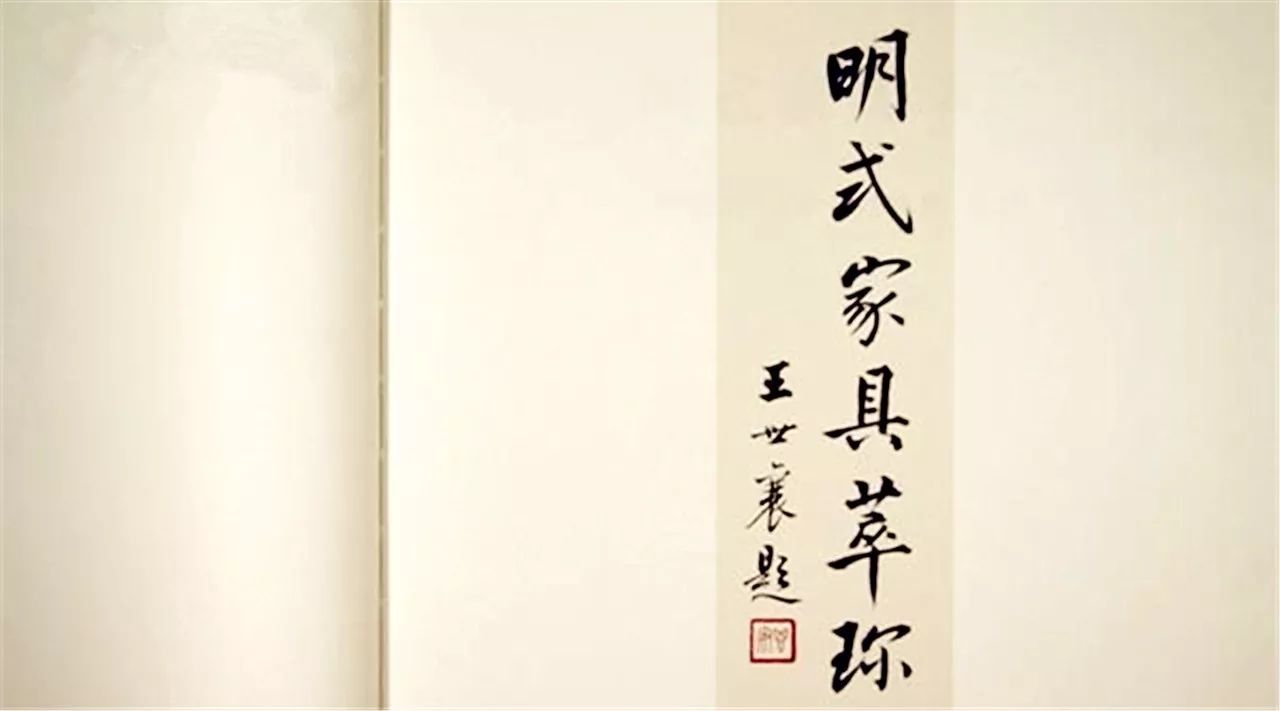 明式家具萃珎
王世襄题